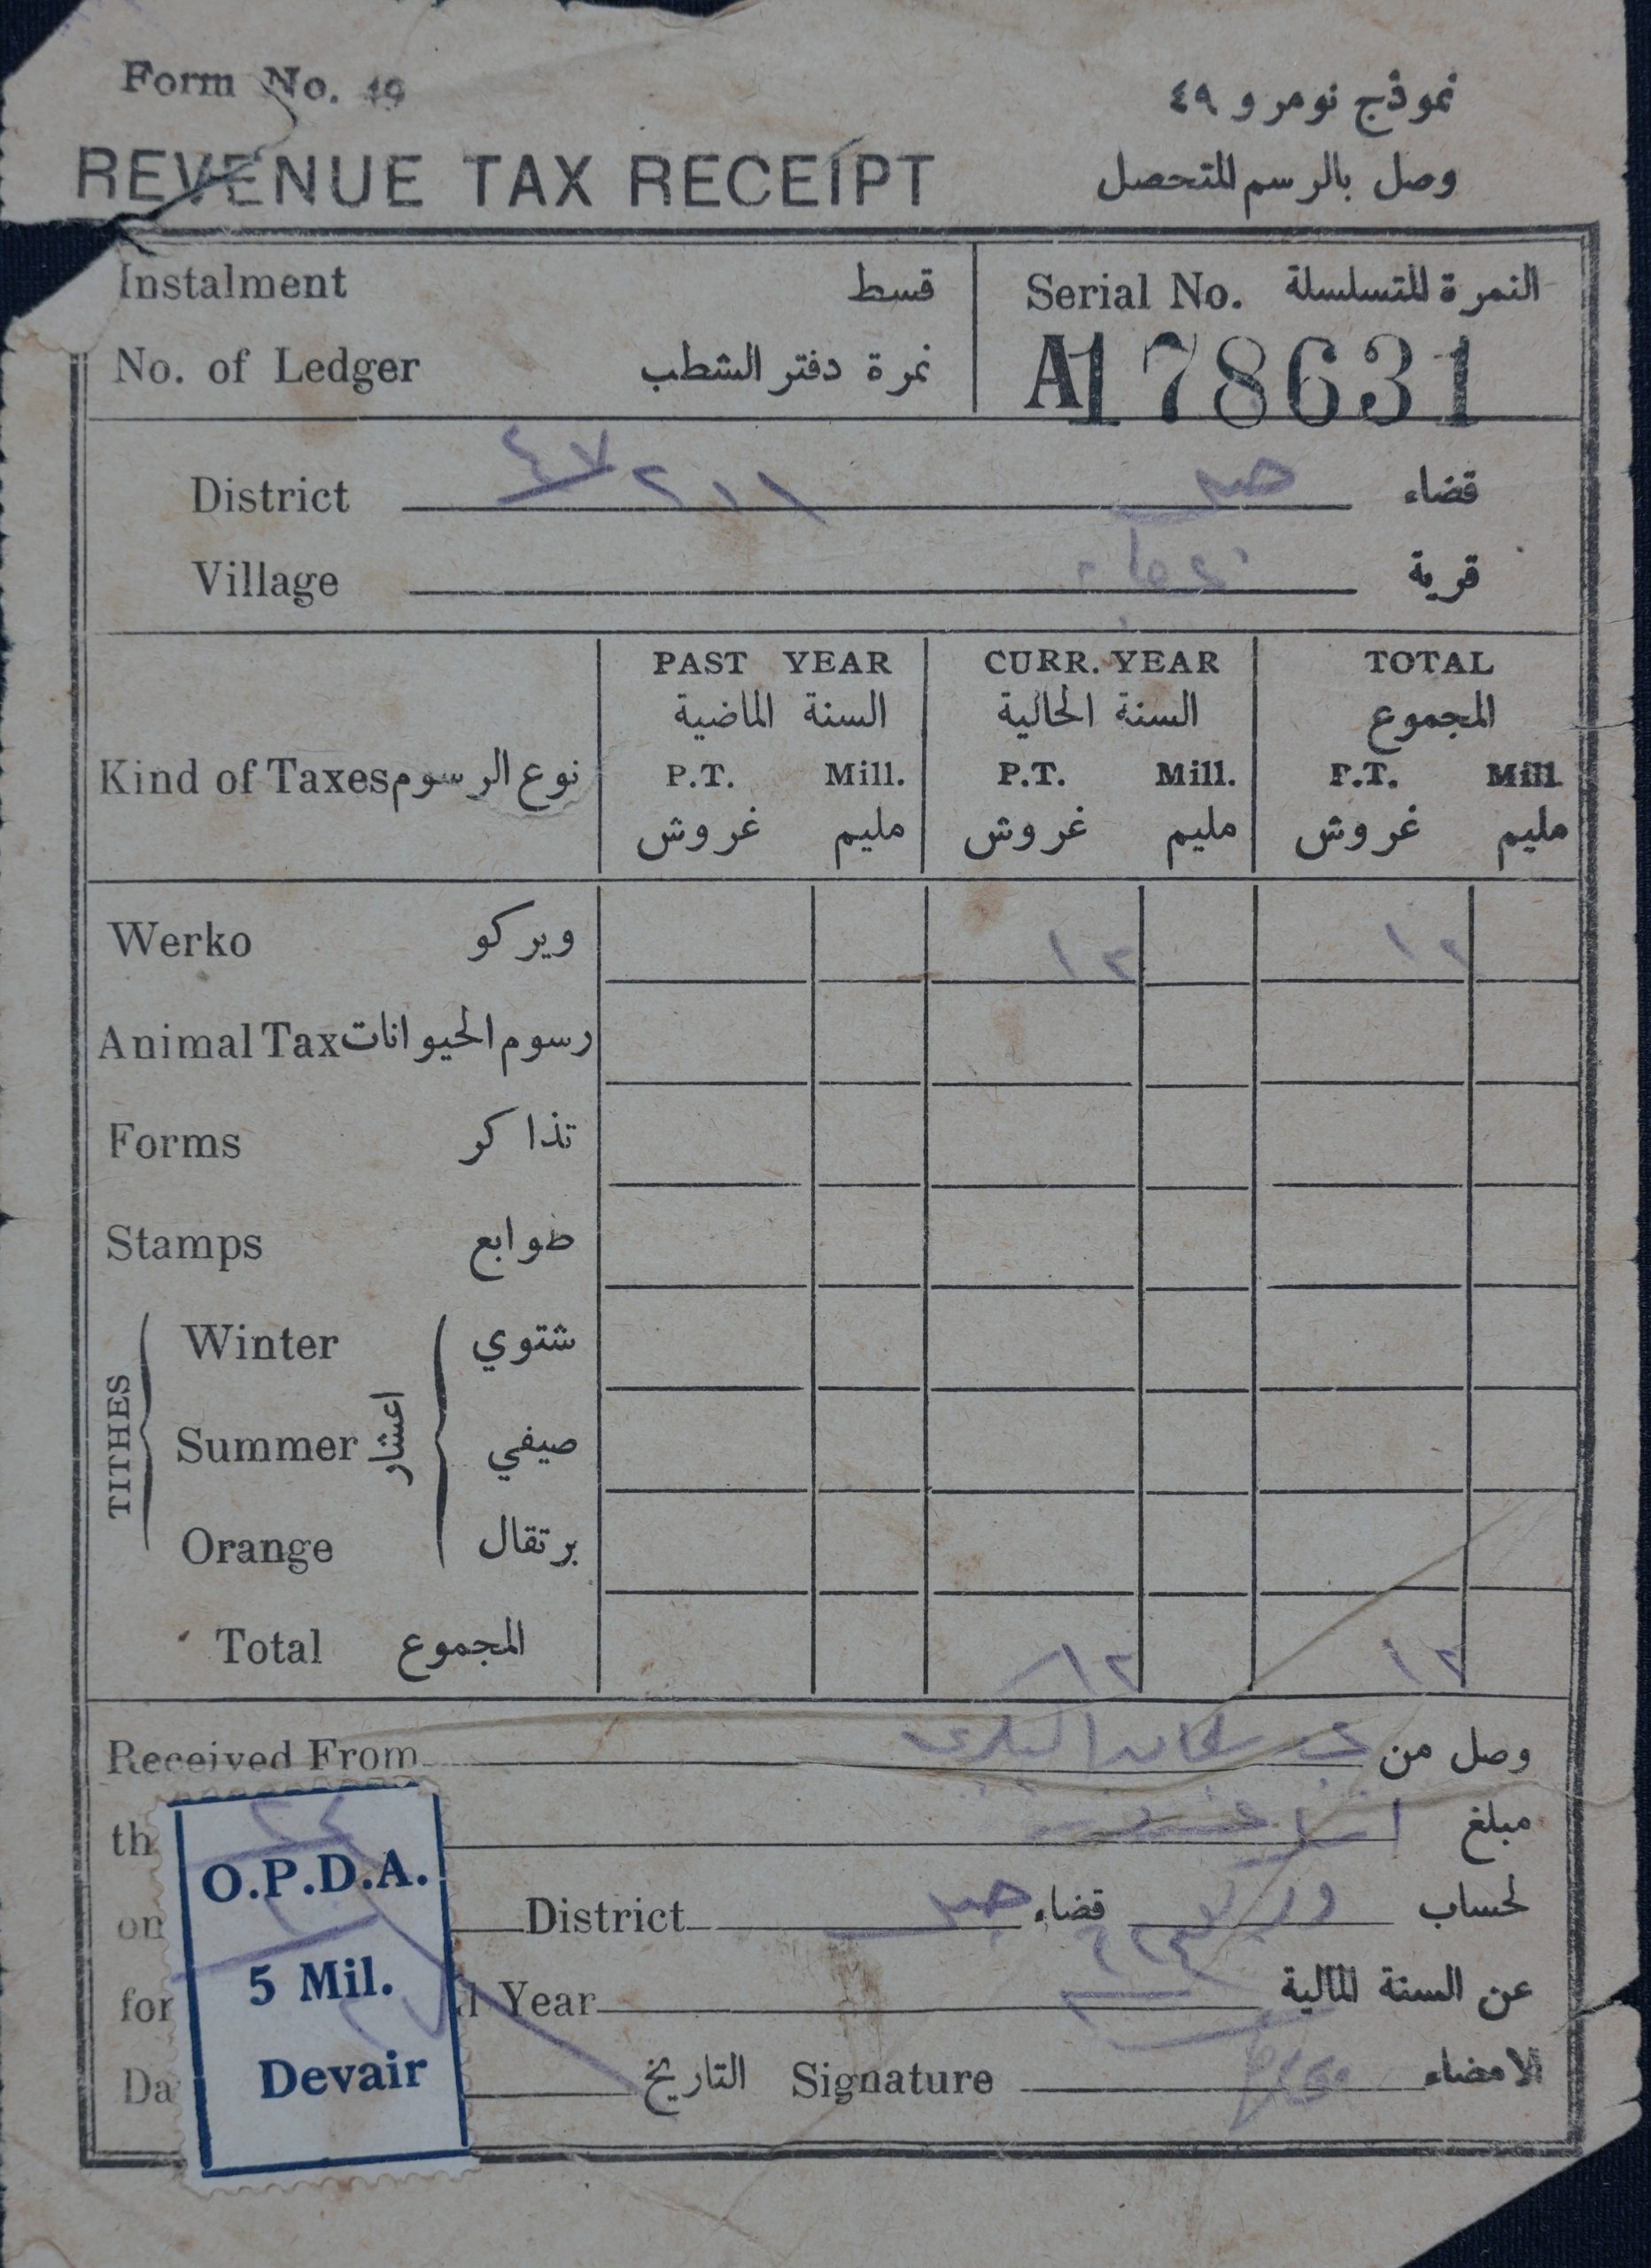 Form No. 49 نموذج نومرو ٤٩
REVENUE TAX RECEIPT وصل بالرسم المتحصل
Instalment قسط
Serial No. النمرة المتسلسلة
No. of Ledger نمرة دفتر الشطب
A178631
District قضاء
Village قرية
PAST YEAR CURR. YEAR TOTAL
السنة الماضية السنة الحالية المجموع
Kind of Taxes نوع الرسوم P.T. Mill. P.T. Mill. P.T. Mill
غروش مليم غروش مليم غروش مليم
Werko ويركو ١٢ ١٢
Animal Tax رسوم الحيوانات
Forms تذاكر
Stamps طوابع
TITHES اعشار
Winter شتوي
Summer صيفي
Orange برتقال
Total المجموع ١٢ ١٢
Received From وصل من
th مبلغ
on District قضاء لحساب
for d Year عن السنة المالية
Da التاريخ Signature الامضاء
O.P.D.A.
5 Mil.
Devair